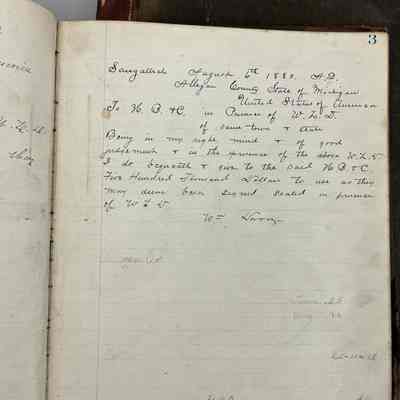 3
Saugatuck August 6th 1880. A.D.
Allegan County State of Michigan
United States of America
To H. B. & C. in Presence of W. L. D.
of same town & state
Being in my right mind & of good
judgement & in the presence of the above W. L. D.
I do bequeath & give to the said H B. & C.
Five Hundred Thousand Dollars to use as they
may deem best signed sealed in presence
of W L D.
Wm